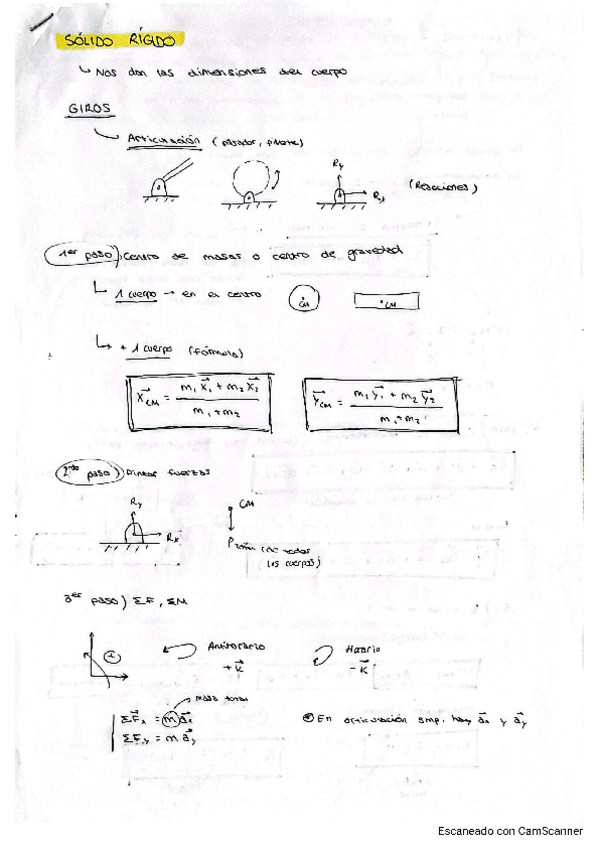 SÓLIDO RÍGIDO
↳ Nos dan las dimensiones del cuerpo
GIROS
↳ Articulación (pasador, pivote)
Ry
Rx
(Reacciones)
1er paso) Centro de masas o centro de gravedad
↳ 1 cuerpo → en el centro
CM
CM
↳ + 1 cuerpo (fórmula)
X⃗CM = (m1 X⃗1 + m2 X⃗2) / (m1 + m2)
y⃗CM = (m1 y⃗1 + m2 y⃗2) / (m1 + m2)
2do paso) Pintar fuerzas
Ry
Rx
CM
Ptotal (de todos
los cuerpos)
3er paso) ΣF, ΣM
Antihorario
+K⃗
Horario
-K⃗
Masa total
ΣF⃗x = m a⃗x
ΣF⃗y = m a⃗y
En articulación smp. hay a⃗x y a⃗y
Escaneado con CamScanner